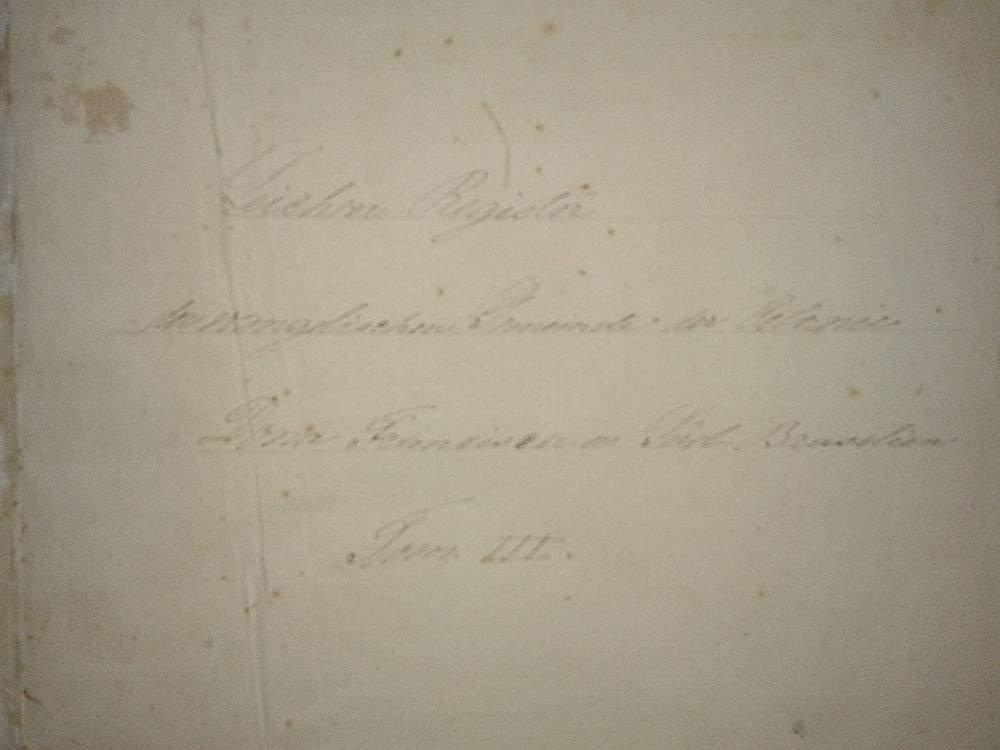 Leichen Register
der evanglischen Gemeinde der Colonie
Dona Francisca in Süd-Brasilien
Tom. III.